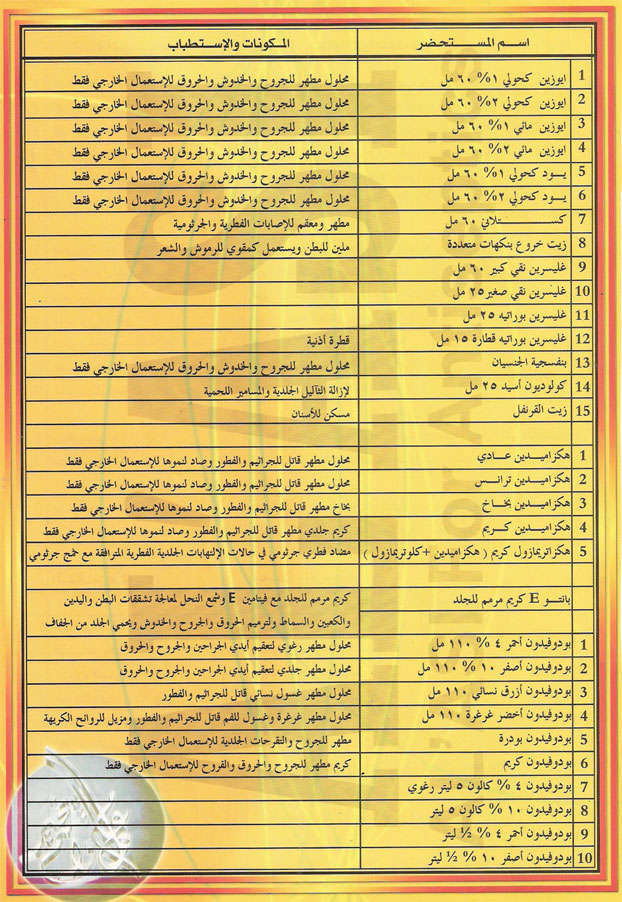 اسم المستحضر المكونات والإستطباب
1 ايوزين كحولي ١% ٦٠ مل محلول مطهر للجروح والخدوش والحروق للإستعمال الخارجي فقط
2 ايوزين كحولي ٢% ٦٠ مل محلول مطهر للجروح والخدوش والحروق للإستعمال الخارجي فقط
3 ايوزين مائي ١% ٦٠ مل محلول مطهر للجروح والخدوش والحروق للإستعمال الخارجي فقط
4 ايوزين مائي ٢% ٦٠ مل محلول مطهر للجروح والخدوش والحروق للإستعمال الخارجي فقط
5 يود كحولي ١% ٦٠ مل محلول مطهر للجروح والخدوش والحروق للإستعمال الخارجي فقط
6 يود كحولي ٢% ٦٠ مل محلول مطهر للجروح والخدوش والحروق للإستعمال الخارجي فقط
7 كستلاني ٦٠ مل مطهر ومعقم للإصابات الفطرية والجرثومية
8 زيت خروع بنكهات متعددة ملين للبطن ويستعمل كمقوي للرموش والشعر
9 غليسرين نقي كبير ٦٠ مل
10 غليسرين نقي صغير ٢٥ مل
11 غليسرين بوراتيه ٢٥ مل
12 غليسرين بوراتيه قطارة ١٥ مل قطرة أذنية
13 بنفسجية الجنسيان محلول مطهر للجروح والخدوش والحروق للإستعمال الخارجي فقط
14 كولوديون أسيد ٢٥ مل لإزالة الثآليل الجلدية والمسامير اللحمية
15 زيت القرنفل مسكن للأسنان
1 هكزاميدين عادي محلول مطهر قاتل للجراثيم والفطور وصاد لنموها للإستعمال الخارجي فقط
2 هكزاميدين ترانس محلول مطهر قاتل للجراثيم والفطور وصاد لنموها للإستعمال الخارجي فقط
3 هكزاميدين بخاخ بخاخ مطهر قاتل للجراثيم والفطور وصاد لنموها للإستعمال الخارجي فقط
4 هكزاميدين كريم كريم جلدي مطهر قاتل للجراثيم والفطور وصاد لنموها للإستعمال الخارجي فقط
5 هكزاتريمازول كريم ( هكزاميدين +كلوتريمازول ) مضاد فطري جرثومي في حالات الإلتهابات الجلدية الفطرية المترافقة مع خمج جرثومي
بانتو E كريم مرمم للجلد كريم مرمم للجلد مع فيتامين E وشمع النحل لمعالجة تشققات البطن واليدين
والكعبين والسماط ولترميم الحروق والجروح والخدوش ويحمي الجلد من الجفاف
1 بودوفيدون أحمر ٤ % ١١٠ مل محلول مطهر رغوي لتعقيم أيدي الجراحين والجروح والحروق
2 بودوفيدون أصفر ١٠ % ١١٠ مل محلول مطهر جلدي لتعقيم أيدي الجراحين والجروح والحروق
3 بودوفيدون أزرق نسائي ١١٠ مل محلول مطهر غسول نسائي قاتل للجراثيم والفطور
4 بودوفيدون أخضر غرغرة ١١٠ مل محلول مطهر غرغرة وغسول للفم قاتل للجراثيم والفطور ومزيل للروائح الكريهة
5 بودوفيدون بودرة مطهر للجروح والتقرحات الجلدية للإستعمال الخارجي فقط
6 بودوفيدون كريم كريم مطهر للجروح والحروق والقروح للإستعمال الخارجي فقط
7 بودوفيدون ٤ % كالون ٥ ليتر رغوي
8 بودوفيدون ١٠ % كالون ٥ ليتر
9 بودوفيدون أحمر ٤ % ½ ليتر
10 بودوفيدون أصفر ١٠ % ½ ليتر